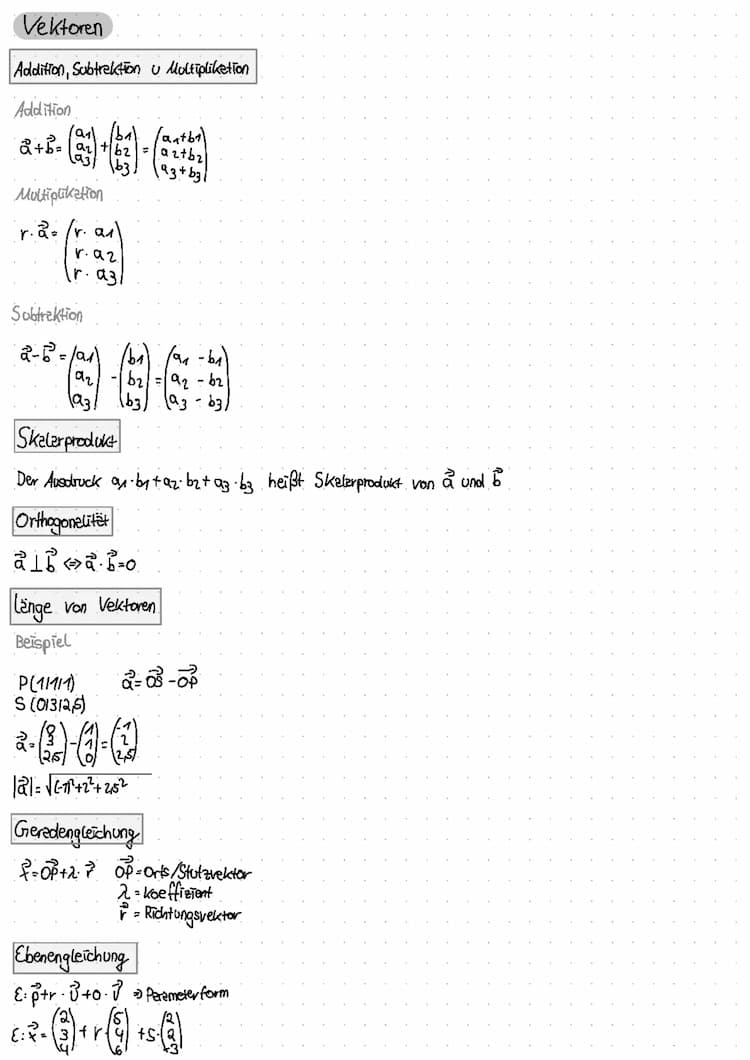 Vektoren
Addition, Subtraktion u Multiplikation
Addition
a⃗+b⃗ = (a1 a2 a3) + (b1 b2 b3) = (a1+b1 a2+b2 a3+b3)
Multiplikation
r · a⃗ = (r · a1 r · a2 r · a3)
Subtraktion
a⃗-b⃗ = (a1 a2 a3) - (b1 b2 b3) = (a1 - b1 a2 - b2 a3 - b3)
Skalarprodukt
Der Ausdruck a1·b1+a2·b2+a3·b3 heißt Skalarprodukt von a⃗ und b⃗
Orthogonalität
a⃗ ⊥ b⃗ ⇔ a⃗ · b⃗ = 0
Länge von Vektoren
Beispiel
P(1/1/1) a⃗ = OS⃗ - OP⃗
S (0/3/2,5)
a⃗ = (0 3 2,5) - (1 1 0) = (-1 2 2,5)
|a⃗| = √(-1)²+2²+2,5²
Geradengleichung
x⃗ = OP⃗ + λ · r⃗ OP⃗ = Orts/Stutzvektor
λ = Koeffizient
r⃗ = Richtungsvektor
Ebenengleichung
E: p⃗+r · U⃗+o · V⃗ ⇒ Parameterform
E: x⃗ = (2 3 4) + r (5 4 6) + s · (2 2 +3)